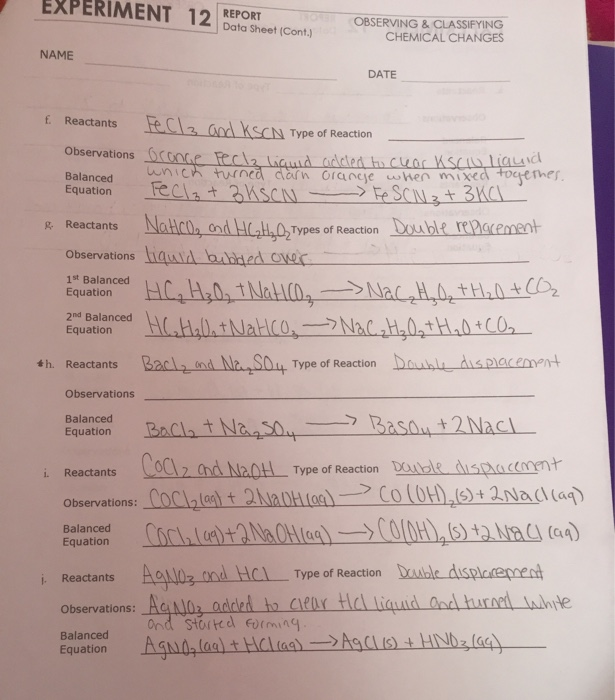 EXPERIMENT 12 REPORT
Data Sheet (Cont.)
OBSERVING & CLASSIFYING
CHEMICAL CHANGES
NAME
DATE
f. Reactants FeCl3 and KSCN Type of Reaction
Observations Orange FeCl3 liquid added to clear KSCN liquid
which turned darn orange when mixed together.
Balanced Equation FeCl3 + 3KSCN → FeSCN3 + 3KCl
g. Reactants NaHCO3 and HC2H3O2 Types of Reaction Double replacement
Observations liquid bubbled over.
1st Balanced Equation HC2H3O2 + NaHCO3 → NaC2H3O2 + H2O + CO2
2nd Balanced Equation HC2H3O2 + NaHCO3 → NaC2H3O2 + H2O + CO2
*h. Reactants BaCl2 and Na2SO4 Type of Reaction Double displacement
Observations
Balanced Equation BaCl2 + Na2SO4 → BaSO4 + 2NaCl
i. Reactants CoCl2 and NaOH Type of Reaction Double displacement
Observations: COCl2(aq) + 2NaOH(aq) → CO(OH)2(s) + 2NaCl(aq)
Balanced Equation COCl2(aq) + 2NaOH(aq) → CO(OH)2(s) + 2NaCl(aq)
j. Reactants AgNO3 and HCl Type of Reaction Double displacement
Observations: AgNO3 added to clear HCl liquid and turned white
and started forming.
Balanced Equation AgNO3(aq) + HCl(aq) → AgCl(s) + HNO3(aq)